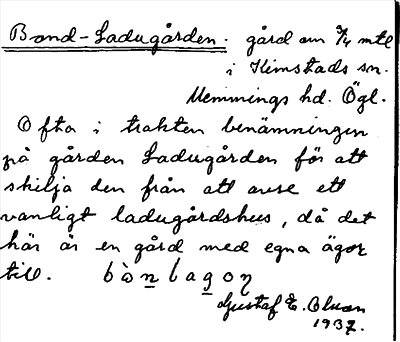 Bond-Ladugården. gård om 3/4 mtl
i Kimstads sn.
Memmings hd. Ögl.
Ofta i trakten benämningen
på gården Ladugården för att
skilja den från att avse ett
vanligt ladugårdshus, då det
här är en gård med egna ägor
till. bònlagoŋ
Gustaf E. Olson
1937.